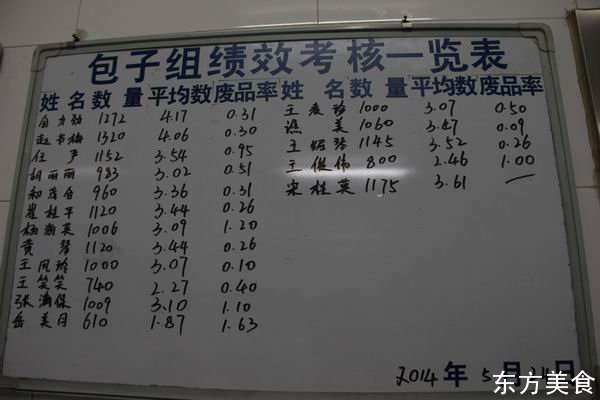 包子组绩效考核一览表
姓名 数量 平均数 废品率 姓名 数量 平均数 废品率
1272 4.17 0.31 王 1000 3.07 0.50
赵书梅 1320 4.06 0.30 美 1060 3.47 0.09
任 1152 3.54 0.95 王 1145 3.52 0.26
胡丽丽 983 3.02 0.51 王俊伟 800 2.46 1.00
960 3.36 0.31 宋桂英 1175 3.61 —
崔桂平 1120 3.44 0.26
杨瀚英 1006 3.09 1.20
黄琴 1120 3.44 0.26
王凤 1000 3.07 0.10
王笑笑 740 2.27 0.40
张 保 1009 3.10 1.10
岳美月 610 1.87 1.63
2014年5月 日
东方美食